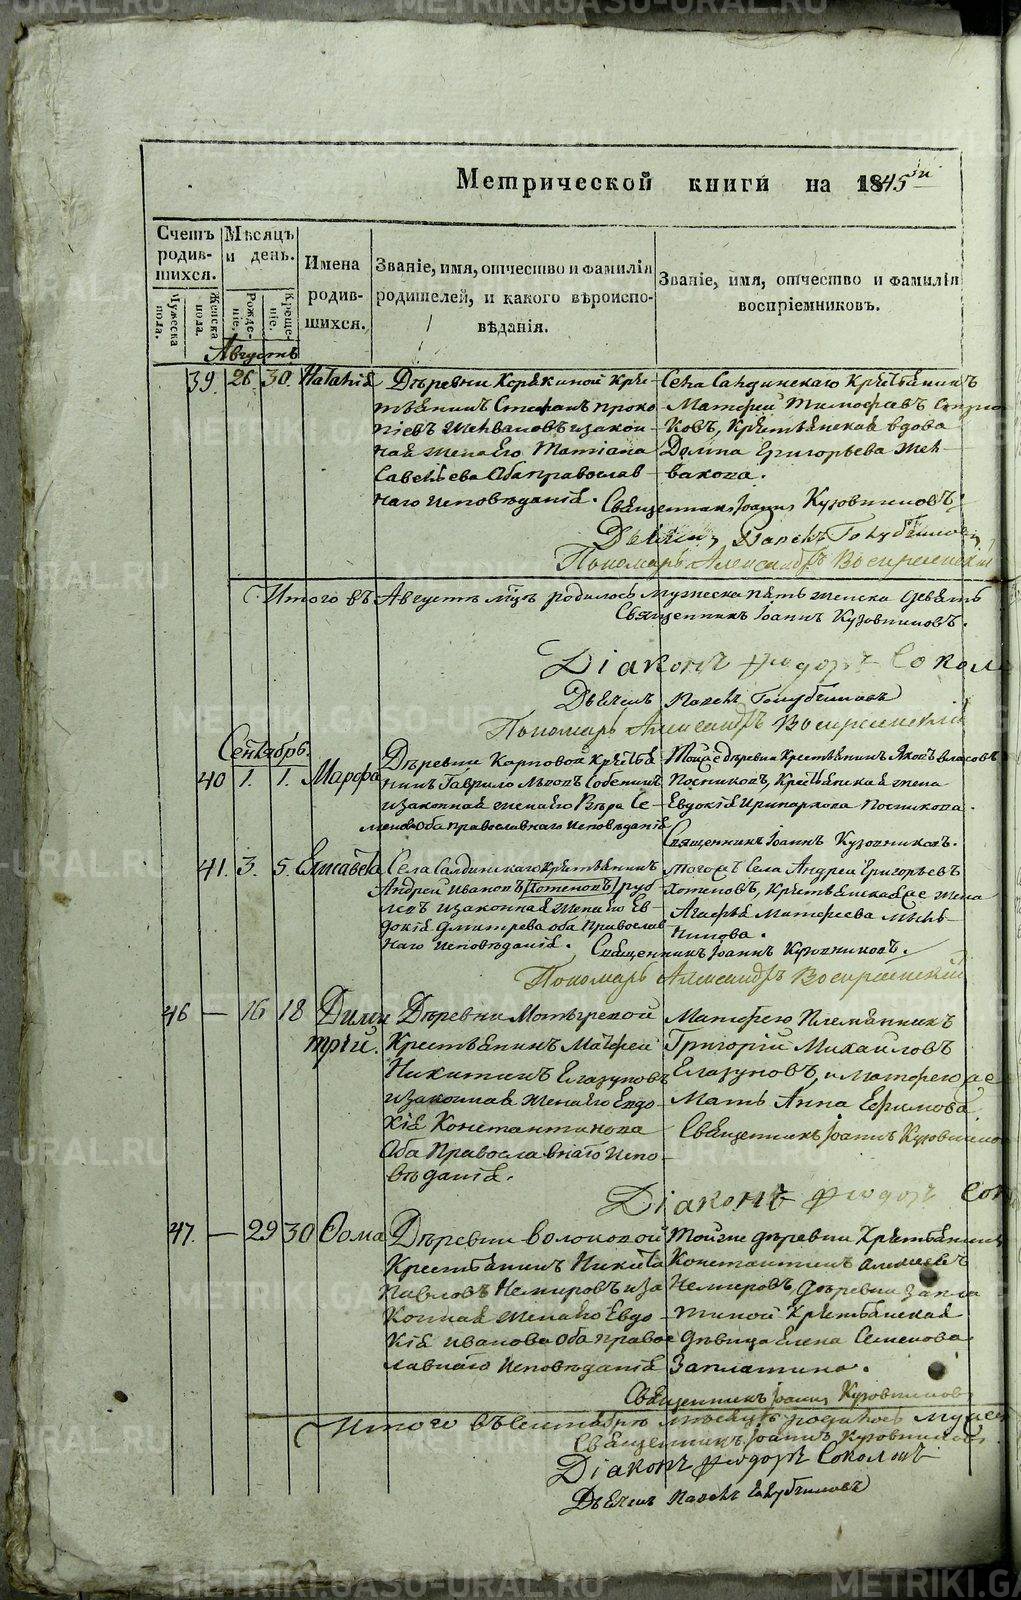 Метрической книги на 1845й
Счетъ родив-шихся.
Мужеска пола.
Женска пола.
Мѣсяцъ и день.
Рожде-ніе.
Креще-ніе.
Имена родив-шихся.
Званіе, имя, отчество и фамилія
родителей, и какого вѣроиспо-
вѣданія.
Званіе, имя, отчество и фамилія
воспріемниковъ.
Августъ
39. 26. 30. Наталія
Дѣревни Корякиной Кре-
стьянинъ Стефанъ Проко-
піевъ и закон-
ная жена его Татіана
Савельева Оба православ-
наго исповѣданія.
Села Салдинскаго Крестьянинъ
Матфей Тимофеевъ
ковъ, Крестьянская вдова
Домна Григорьева
вакова.
Священникъ Іоаннъ Кузовниковъ.
Дьячекъ Павелъ Голубчиковъ
Пономарь Александръ Воскресенскій
Итого въ Августѣ мцѣ родилось мужеска пять женска девять
Священникъ Іоаннъ Кузовниковъ.
Діаконъ Ѳеодоръ Соколо
Дьячекъ Павелъ Голубчиковъ
Пономарь Александръ Воскресенскій
Сентябрь.
40 1. 1. Марѳа
Дѣревни Карповой Крестья-
нинъ Гаврило Львовъ
и законная жена его Вѣра Се-
менова Оба православнаго исповѣданія
Тойже дѣревни Крестьянинъ Яковъ Власовъ
Посниковъ, Крестьянская жена
Евдокія Иринархова Посникова.
Священникъ Іоаннъ Кузовниковъ.
41. 3. 5. Елисавета
Села Салдинскаго Крестьянинъ
Андрей Ивановъ Потеповъ
левъ и законная жена его Ев-
докія Дмитрева оба православ
наго исповѣданія.
тогожъ Села Андрей Григорьевъ
Потеповъ, Крестьянская же жена
Агафья Матфеева
Священникъ Іоаннъ Кузовниковъ.
Пономарь Александръ Воскресенскій
46 — 16 18 Дими
трій.
Дѣревни
Крестьянинъ Матфей
Никитинъ Глазуновъ
и законная жена его Евдо-
кія Константинова
Оба Православнаго Испо-
вѣданія.
Матфею Племянникъ
Григорій Михаиловъ
Глазуновъ, и Матфею же
Мать Анна Ефимова.
Священникъ Іоаннъ Кузовниковъ
Діаконъ Ѳеодоръ Сок
47. — 29 30 Ѳома
Дѣревни Волоковой
Крестьянинъ Никита
Павловъ Немировъ и за
конная жена его Евдо-
кія Иванова Оба право
славнаго исповѣданія
Тойже дѣревни Крестьянинъ
Константинъ Алексеевъ
Немировъ, дѣревни Запла
тиной Крестьянская
дѣвица Елена Семенова
Заплатина.
Священникъ Іоаннъ Кузовниковъ
Итого въ Сентябрѣ мѣсяцѣ родилось муже
Священникъ Іоаннъ Кузовниковъ.
Діаконъ Ѳеодоръ Соколовъ
Дьячекъ Павелъ Голубчиковъ
METRIKI.GASO-URAL.RU